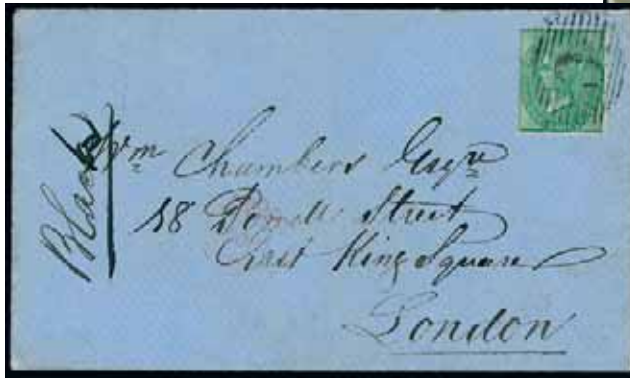 Wm Chambers Esqre
18 Powell Street
East King Square
London